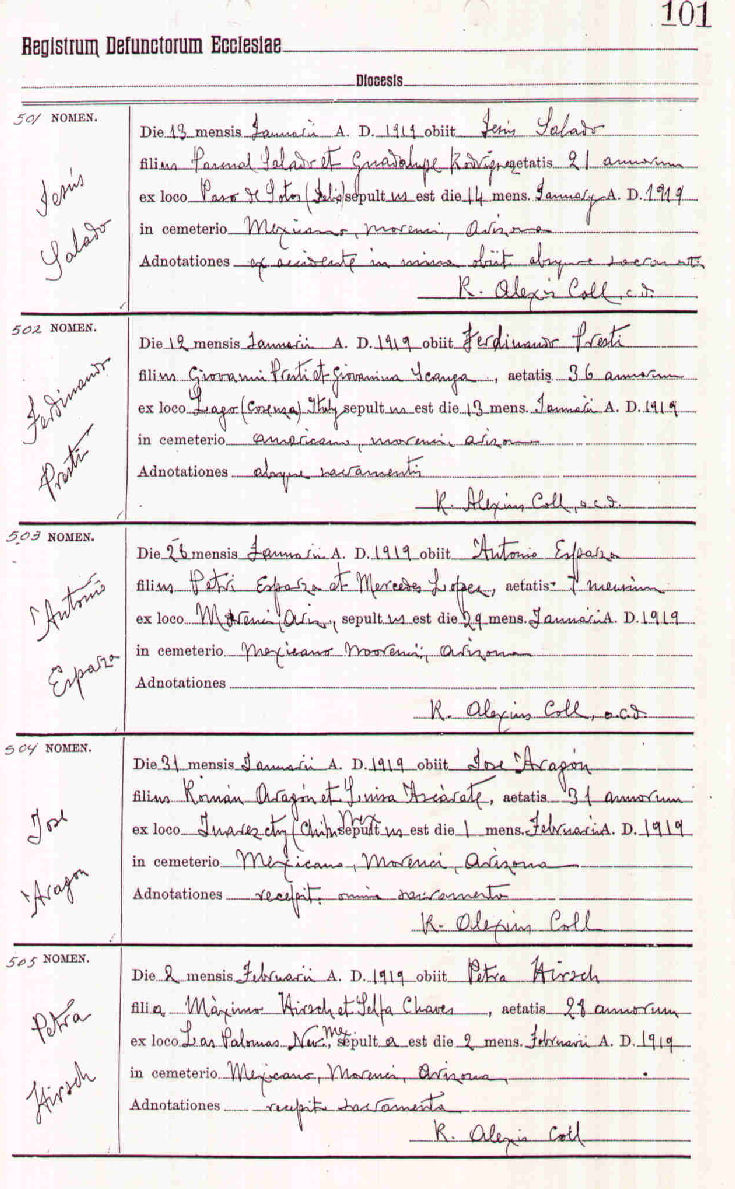 101
Registrum Defunctorum Ecclesiae
Diocesis
501 NOMEN.
Jesús
Salado
Die 13 mensis Januarii A. D. 1919 obiit Jesús Salado
filius Salado et Guadalupe Rodrigez aetatis 21 annorum
ex loco Paso de Sotos (Jalis) sepult us est die 14 mens. January A. D. 1919
in cemeterio Mexicano, Morenci, Arizona
Adnotationes ex accidente in mina obiit absque sacramentis
R. Alexis Coll c.d.
502 NOMEN.
Ferdinando
Presti
Die 12 mensis Januarii A. D. 1919 obiit Ferdinando Presti
filius Giovanni Presti et Giovanina Scanga, aetatis 36 annorum
ex loco Lago (Cosenza) Italy sepult us est die 13 mens. Januarii A. D. 1919
in cemeterio americano, morenci, arizona
Adnotationes absque sacramentis
R. Alexius Coll, o.c.d.
503 NOMEN.
Antonio
Esparza
Die 26 mensis Januarii A. D. 1919 obiit Antonio Esparza
filius Petri Esparza et Mercedes Lopez, aetatis 7 mensium
ex loco Morenci, Ariz., sepult us est die 29 mens. Januarii A. D. 1919
in cemeterio Mexicano Moorenci, Arizona
Adnotationes
R. Alexius Coll, o.c.d.
504 NOMEN.
José
Aragon
Die 31 mensis Januarii A. D. 1919 obiit Jose Aragón
filius Román Aragón et Luisa Azcárate, aetatis 31 annorum
ex loco Juarez cty (Chih. Mex sepult us est die 1 mens. Februarii A. D. 1919
in cemeterio Mexicano, Morenci, Arizona
Adnotationes recepit omnia sacramenta
R. Alexius Coll
505 NOMEN.
Petra
Hirsch
Die 2 mensis Februarii A. D. 1919 obiit Petra Hirsch
filia Màximo Hirsch et Selfa Chaves, aetatis 28 annorum
ex loco Las Palomas New. Mex sepult a est die 2 mens. Februarii A. D. 1919
in cemeterio Mexicano, Morenci, Arizona,
Adnotationes recepit sacramenta
R. Alexis Coll